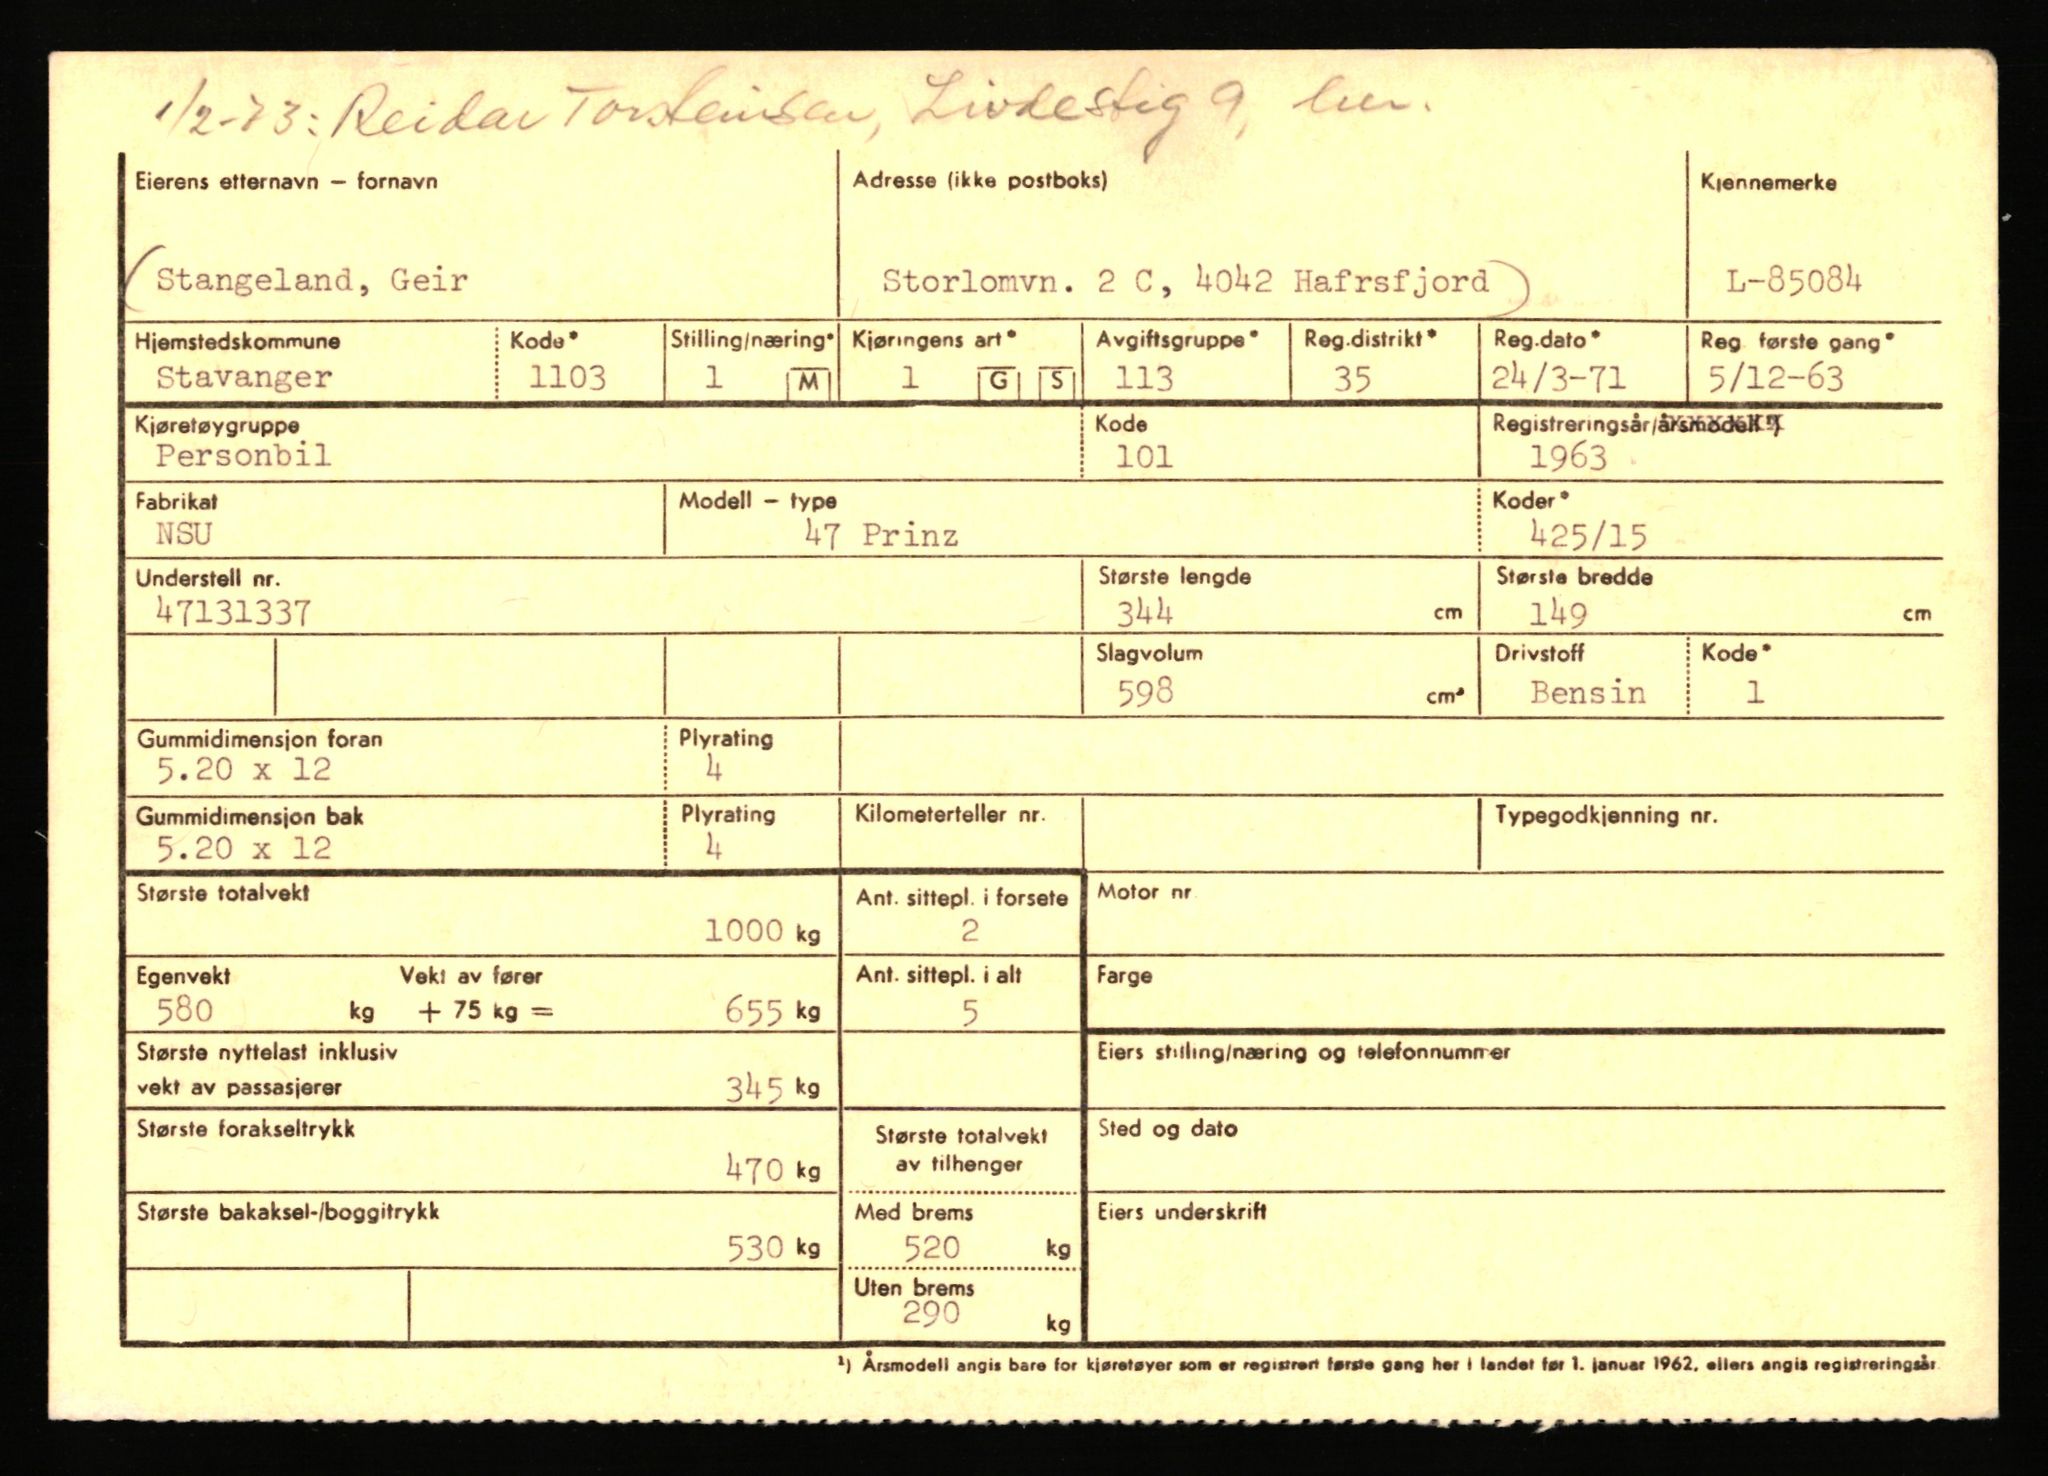 1/2-73: Reidar Torsteinsen, Livdestig 9, her.
Eierens etternavn – fornavn Adresse (ikke postboks) Kjennemerke
(Stangeland, Geir Storlomvn. 2 C, 4042 Hafrsfjord) L-85084
Hjemstedskommune Kode* Stilling/næring* Kjøringens art* Avgiftsgruppe* Reg.distrikt* Reg.dato* Reg første gang*
Stavanger 1103 1 M 1 G S 113 35 24/3-71 5/12-63
Kjøretøygruppe Kode Registreringsår/årsmodell ¹)
Personbil 101 1963
Fabrikat Modell – type Koder*
NSU 47 Prinz 425/15
Understell nr. Største lengde Største bredde
47131337 344 cm 149 cm
Slagvolum Drivstoff Kode*
598 cm³ Bensin 1
Gummidimensjon foran Plyrating
5.20 x 12 4
Gummidimensjon bak Plyrating Kilometerteller nr. Typegodkjenning nr.
5.20 x 12 4
Største totalvekt Ant. sittepl. i forsete Motor nr
1000 kg 2
Egenvekt Vekt av fører Ant. sittepl. i alt Farge
580 kg + 75 kg = 655 kg 5
Største nyttelast inklusiv Eiers stilling/næring og telefonnummer
vekt av passasjerer 345 kg
Største forakseltrykk Største totalvekt Sted og dato
av tilhenger
470 kg
Største bakaksel-/boggitrykk Med brems Eiers underskrift
530 kg 520 kg
Uten brems
290 kg
¹) Årsmodell angis bare for kjøretøyer som er registrert første gang her i landet før 1. januar 1962, ellers angis registreringsår